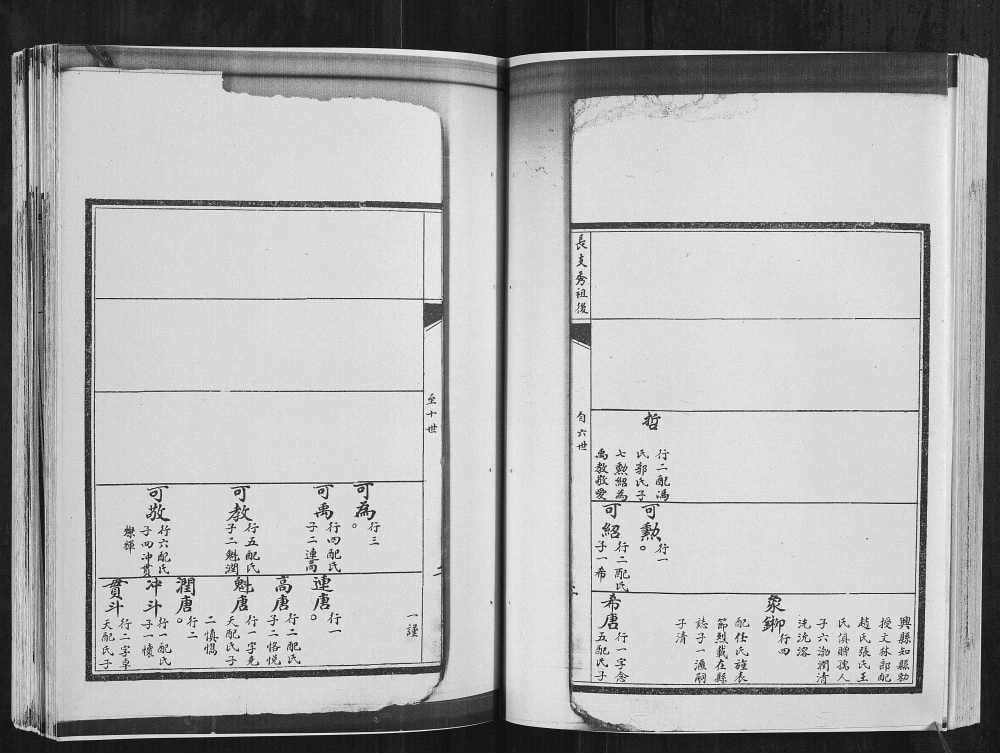 長支秀祖後
自六世
哲
行二配馮
氏郭氏子
七勲紹為
禹教敬愛
可勲
行一
。
可紹
行二配氏
子一希
興縣知縣勅
授文林郎配
趙氏張氏王
氏俱贈孺人
子六泐潤清
洸沇溶
象鉚
行四
配任氏旌表
節烈載在縣
誌子一漁嗣
子清
希唐
行一字念
五配氏子
至十世
一謹
可為
行三
。
可禹
行四配氏
子二連高
可教
行五配氏
子二魁潤
可敬
行六配氏
子四冲貫
燦輝
連唐
行一
。
高唐
行二配氏
子二恪悅
魁唐
行一字克
天配氏子
二慎憍
潤唐
行二
。
冲斗
行一配氏
子一懷
貫斗
行二字卓
天配氏子